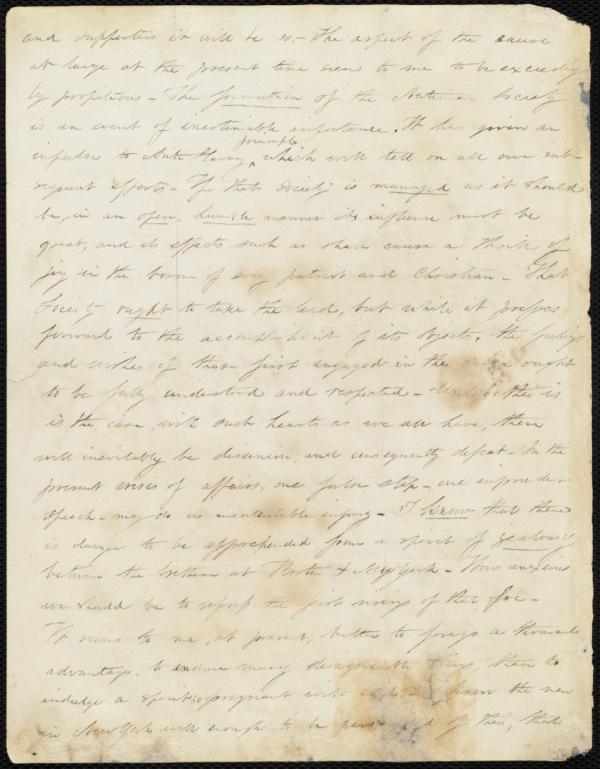 and supporters it will be so. - The aspect of the cause
at large at the present time seems to me to be exceeding
ly propitious - The formation of the National Society
is an event of inestimable importance. It has given an
impulse to Anti Slavery principle which will tell on all our sub-
sequent efforts - If that Society is managed as it should
be, in an open, humble manner its influence must be
great, and its effects such as shall cause a thrill of
joy in the bosom of every patriot and Christian - That
Society ought to take the lead, but while it presses
forward to the accomplishment of its objects, the feelings
and wishes of those first engaged in the cause ought
to be fully understood and respected - Unless this is
is the case, with such hearts as we all have, there
will inevitably be disunion, and consequently defeat - In the
present crisis of affairs, one false step - one imprudent
speech - may do us incalculable injury - I know that there
is danger to be apprehended from a spirit of jealousy
between the brethren at Boston & New York - How anxious
we should be to repress the first risings of that foe -
It seems to me, at present, better to forego a thousand
advantages, to endure many disagreeable things, than to
indulge a spirit so pregnant with I know the men
in New York well enough to be persuaded of this, that